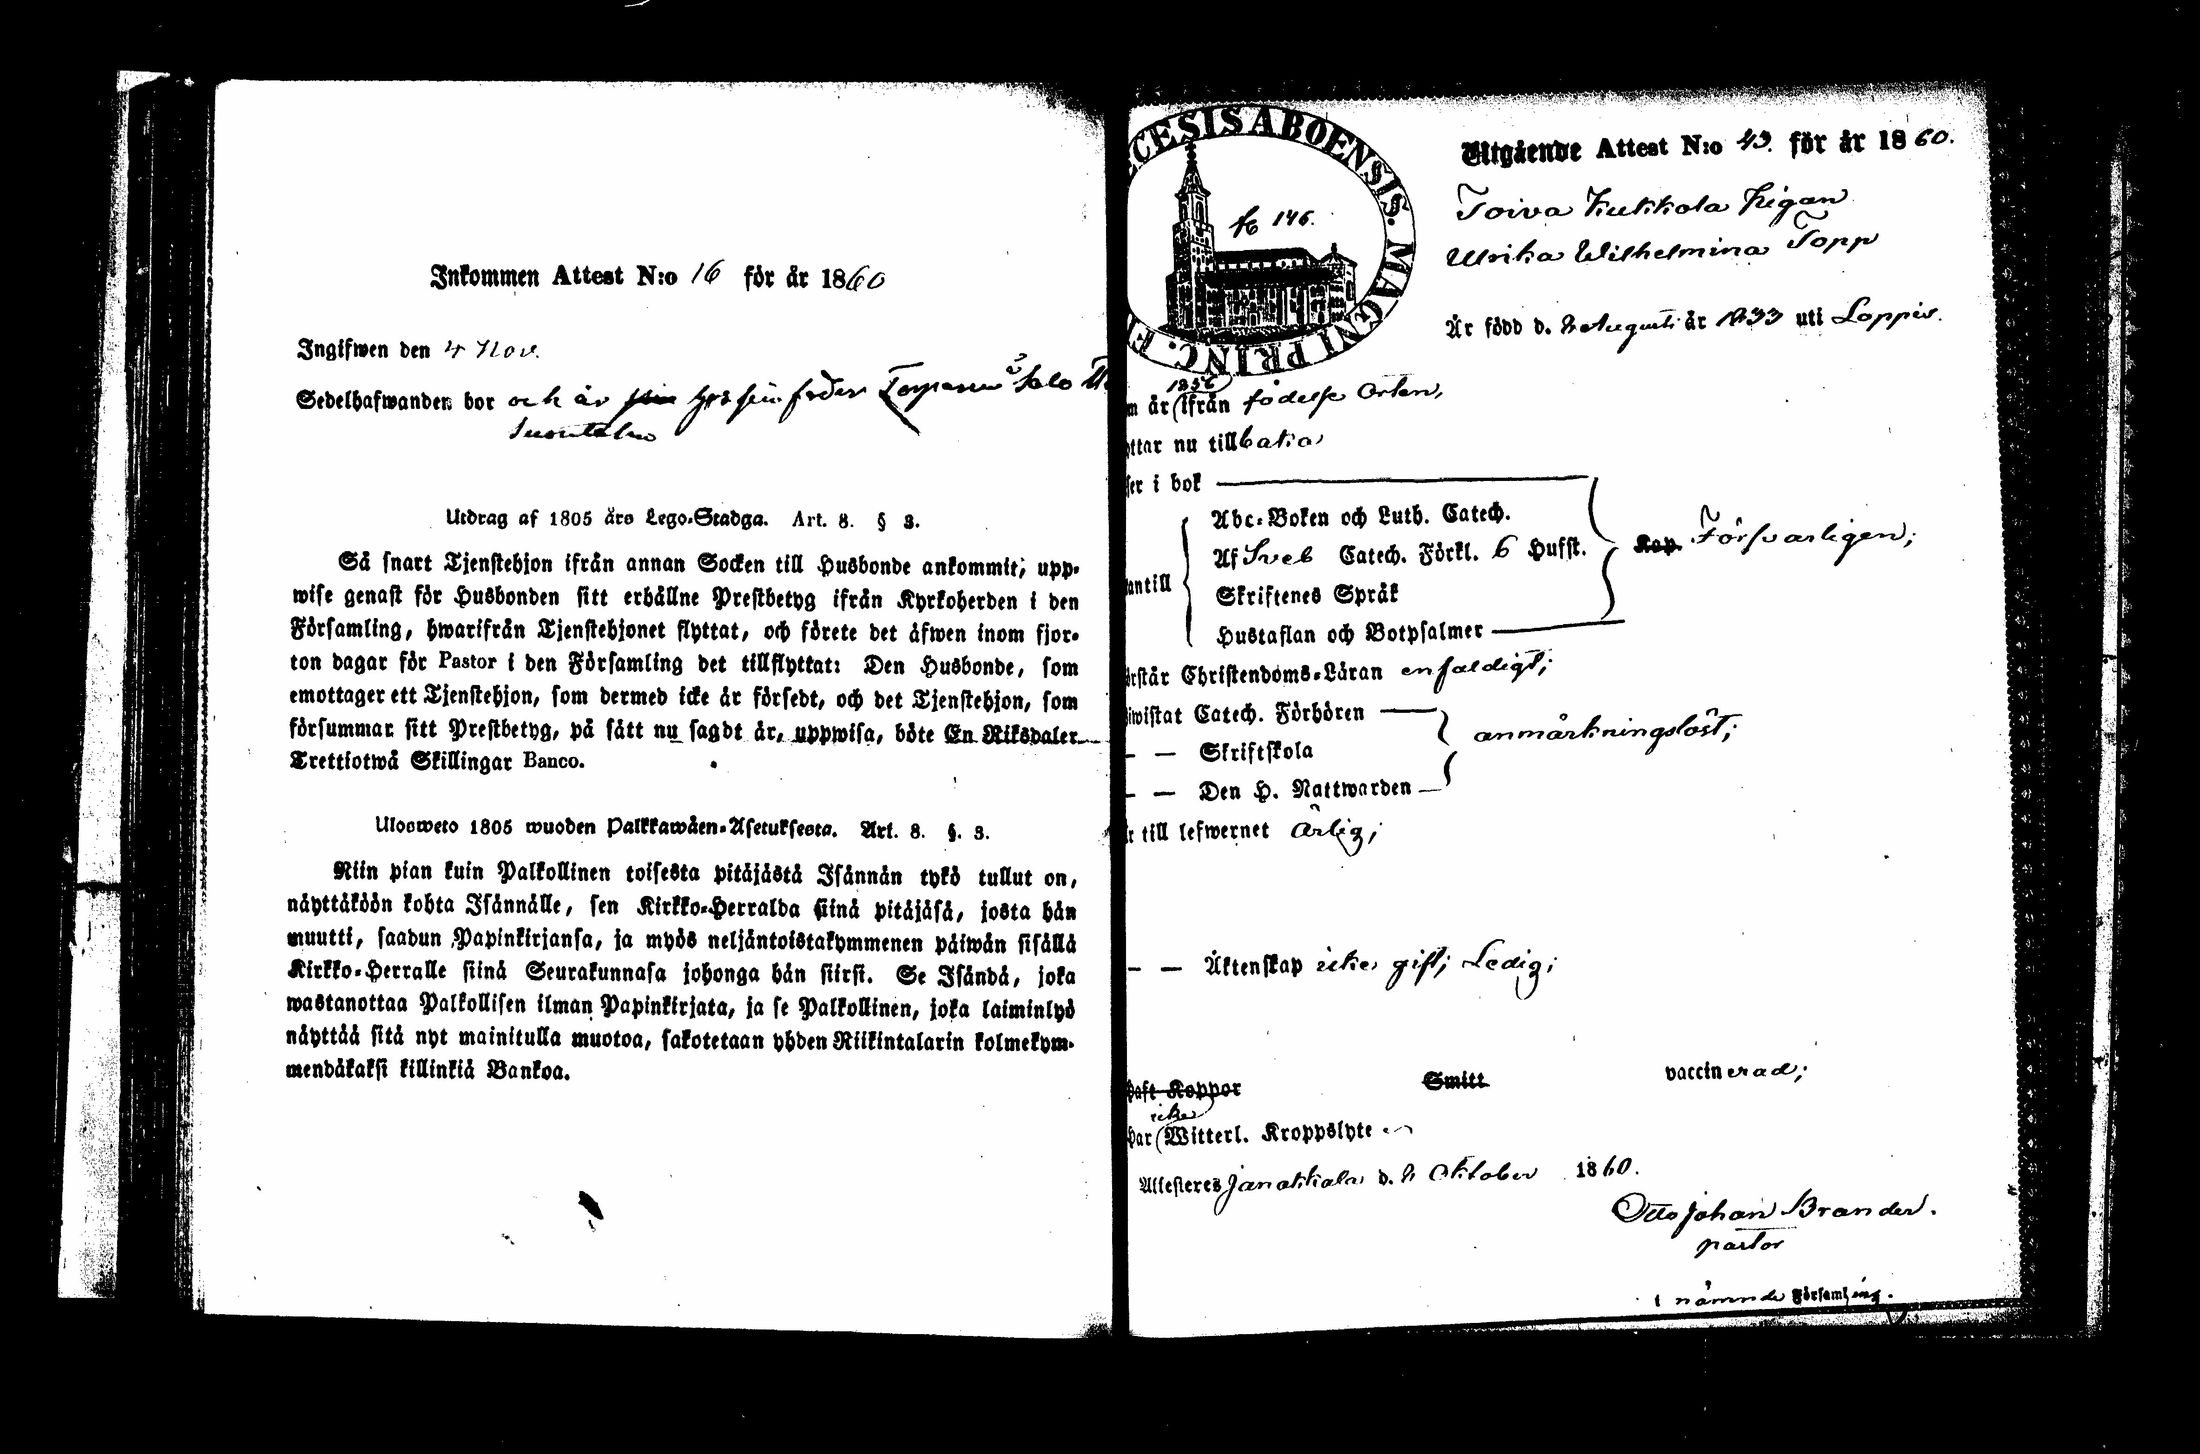 Inkommen Attest N:o 16 för år 1860
Ingifwen den 4 Nov.
Sedelhafwanden bor och är hos sin fader Torparen å Salo
Utdrag af 1805 års Lego-Stadga. Art. 8. § 3.
Så snart Tjenstehjon ifrån annan Socken till Husbonde ankommit, upp-
wise genast för Husbonden sitt erhållne Prestbetyg ifrån Kyrkoherden i den
Församling, hwarifrån Tjenstehjonet flyttat, och förete det äfwen inom fjor-
ton dagar för Pastor i den Församling det tillflyttat: Den Husbonde, som
emottager ett Tjenstehjon, som dermed icke är försedt, och det Tjenstehjon, som
försummar sitt Prestbetyg, på sätt nu sagdt är, uppwisa, böte En Riksdaler
Trettiotwå Skillingar Banco.
Ulosweto 1805 wuoden Palkkawäen-Asetuksesta. Art. 8. §. 3.
Niin pian kuin Palkollinen toisesta pitäjästä Isännän tykö tullut on,
näyttäköön kohta Isännälle, sen Kirkko-Herralda siinä pitäjäsä, josta hän
muutti, saadun Papinkirjansa, ja myös neljäntoistakymmenen päiwän sisällä
Kirkko-Herralle siinä Seurakunnasa johonga hän siirsi. Se Isändä, joka
wastanottaa Palkollisen ilman Papinkirjata, ja se Palkollinen, joka laiminlyö
näyttää sitä nyt mainitulla muotoa, sakotetaan yhden Riikintalarin kolmekym-
mendäkaksi killinkiä Bankoa.
ECESIS ABOENSIS. MAGNI PRINC. F
146.
Utgående Attest N:o 43. för år 1860.
Toiva Kukkola Pigan
Ulrika Wilhelmina Topp
Är född d. 2 Augusti år 1833 uti Loppis.
1856
m år ifrån födelse Orten,
ttar nu till baka
ser i bok
Abc-Boken och Luth. Catech.
Af Sveb Catech. Förkl. 6 Hufst. Kap. Försvarligen;
antill
Skriftenes Språk
Hustaflan och Botpsalmer
örstår Christendoms-Läran enfaldigt;
iwistat Catech. Förhören
— — Skriftskola anmärkningslöst;
— — Den H. Nattwarden
r till lefwernet ärlig;
— — Äktenskap icke gift; Ledig;
haft Koppor Smitt vaccinerad;
icke
har Witterl. Kroppslyte
Attesteres Janakkala d. 2 Oktober 1860.
Otto Johan Brander.
pastor
i nämnde Församling.